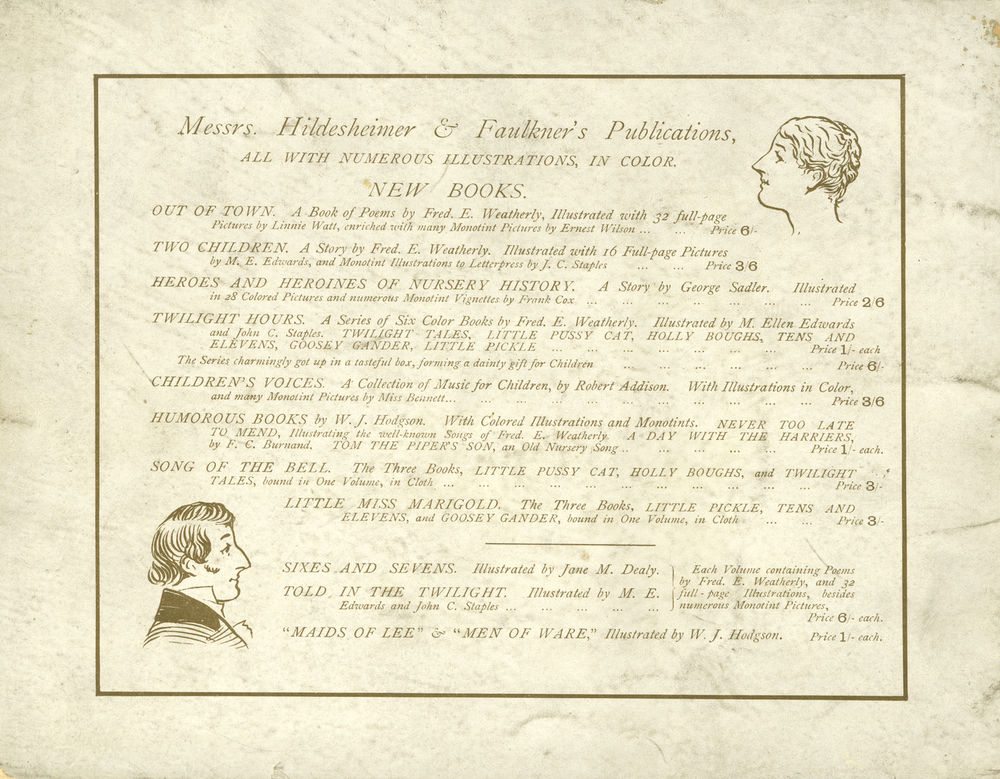 Messrs. Hildesheimer & Faulkner's Publications,
ALL WITH NUMEROUS ILLUSTRATIONS, IN COLOR.
NEW BOOKS.
OUT OF TOWN. A Book of Poems by Fred. E. Weatherly, Illustrated with 32 full-page
Pictures by Linnie Watt, enriched with many Monotint Pictures by Ernest Wilson ... ... Price 6/-
TWO CHILDREN. A Story by Fred. E. Weatherly. Illustrated with 16 Full-page Pictures
by M. E. Edwards, and Monotint Illustrations to Letterpress by J. C. Staples ... ... Price 3/6
HEROES AND HEROINES OF NURSERY HISTORY. A Story by George Sadler. Illustrated
in 28 Colored Pictures and numerous Monotint Vignettes by Frank Cox ... ... ... ... ... ... ... Price 2/6
TWILIGHT HOURS. A Series of Six Color Books by Fred. E. Weatherly. Illustrated by M. Ellen Edwards
and John C. Staples. TWILIGHT TALES, LITTLE PUSSY CAT, HOLLY BOUGHS, TENS AND
ELEVENS, GOOSEY GANDER, LITTLE PICKLE ... ... ... ... ... ... ... Price 1/- each
The Series charmingly got up in a tasteful box, forming a dainty gift for Children ... ... ... ... Price 6/-
CHILDREN'S VOICES. A Collection of Music for Children, by Robert Addison. With Illustrations in Color,
and many Monotint Pictures by Miss Bennett... ... ... ... ... ... ... ... ... ... ... Price 3/6
HUMOROUS BOOKS by W. J. Hodgson. With Colored Illustrations and Monotints. NEVER TOO LATE
TO MEND, Illustrating the well-known Songs of Fred. E. Weatherly. A DAY WITH THE HARRIERS,
by F. C. Burnand. TOM THE PIPER'S SON, an Old Nursery Song .. ... ... ... ... Price 1/- each.
SONG OF THE BELL. The Three Books, LITTLE PUSSY CAT, HOLLY BOUGHS, and TWILIGHT
TALES, bound in One Volume, in Cloth ... ... ... ... ... ... ... ... ... ... ... Price 3/-
LITTLE MISS MARIGOLD. The Three Books, LITTLE PICKLE, TENS AND
ELEVENS, and GOOSEY GANDER, bound in One Volume, in Cloth ... ... Price 3/-
SIXES AND SEVENS. Illustrated by Jane M. Dealy.
TOLD IN THE TWILIGHT. Illustrated by M. E.
Edwards and John C. Staples ... ... ... ... ...
Each Volume containing Poems
by Fred. E. Weatherly, and 32
full-page Illustrations, besides
numerous Monotint Pictures,
Price 6/- each.
"MAIDS OF LEE" & "MEN OF WARE," Illustrated by W. J. Hodgson. Price 1/- each.